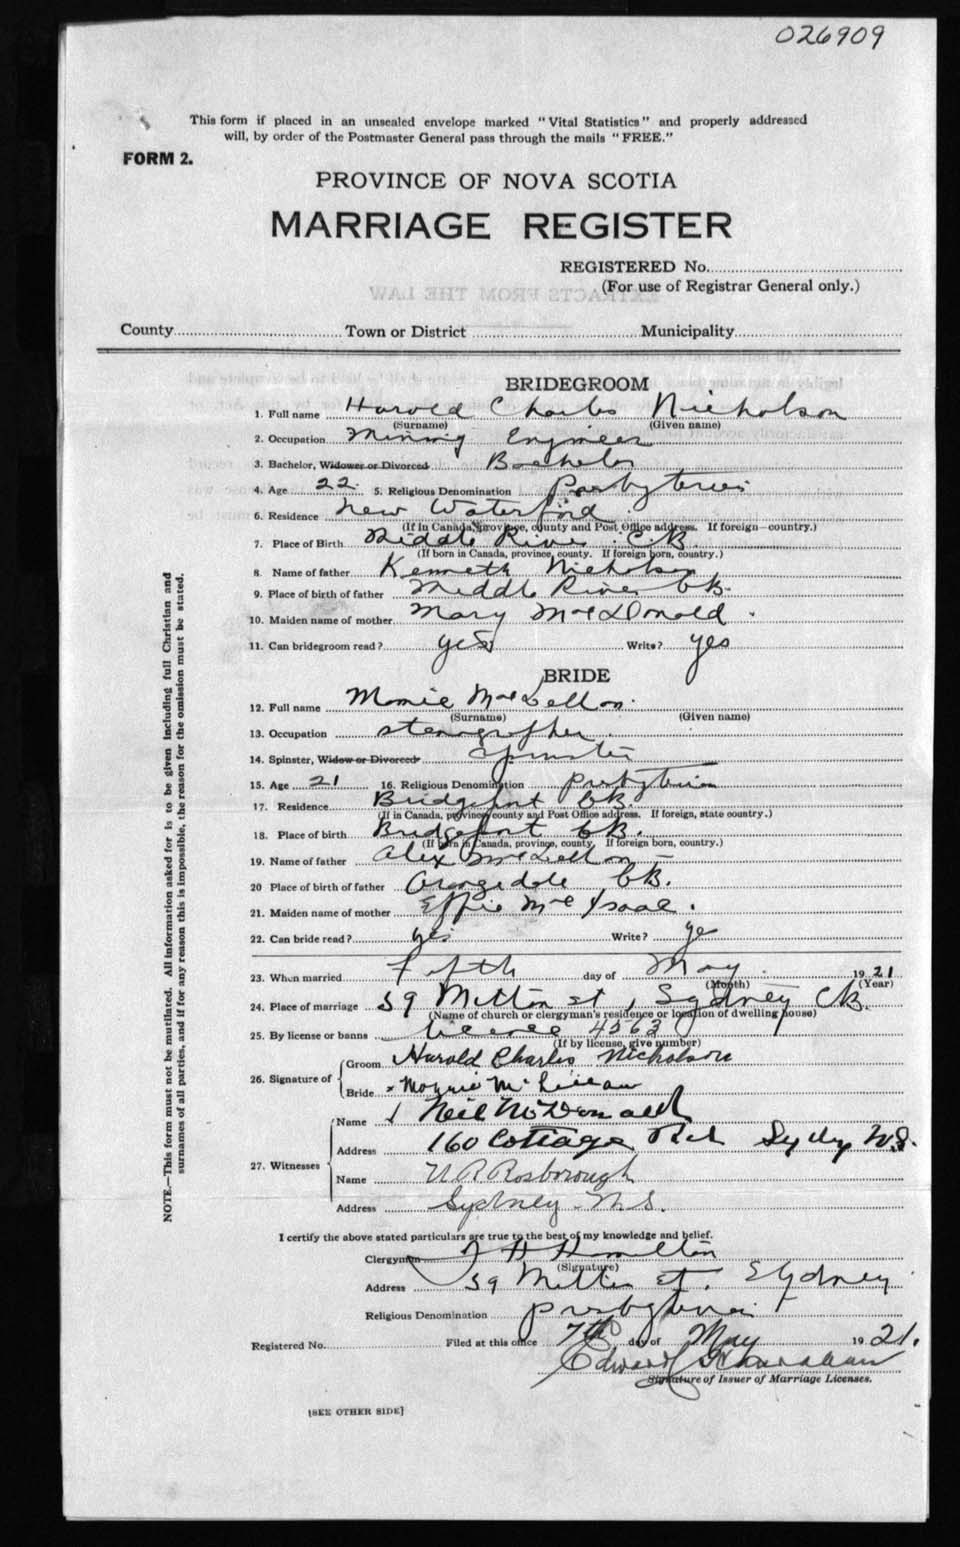 026909
This form if placed in an unsealed envelope marked "Vital Statistics" and properly addressed
will, by order of the Postmaster General pass through the mails "FREE."
FORM 2.
PROVINCE OF NOVA SCOTIA
MARRIAGE REGISTER
REGISTERED No.
(For use of Registrar General only.)
County Town or District Municipality
BRIDEGROOM
1. Full name Harold Charles Nicholson
(Surname) (Given name)
2. Occupation Mining Engineer
3. Bachelor, Widower or Divorced Bachelor
4. Age 22 5. Religious Denomination Presbyterian
6. Residence New Waterford
(If in Canada, province, county and Post Office address. If foreign—country.)
7. Place of Birth Middle River C.B.
(If born in Canada, province, county. If foreign born, country.)
8. Name of father Kenneth Nicholson
9. Place of birth of father Middle River C.B.
10. Maiden name of mother Mary McDonald
11. Can bridegroom read? yes Write? yes
BRIDE
12. Full name
(Surname) (Given name)
13. Occupation stenographer
14. Spinster, Widow or Divorced Spinster
15. Age 21 16. Religious Denomination Presbyterian
17. Residence Bridgeport C.B.
(If in Canada, province, county and Post Office address. If foreign, state country.)
18. Place of birth Bridgeport C.B.
(If born in Canada, province, county. If foreign born, country.)
19. Name of father Alex
20 Place of birth of father Orangedale C.B.
21. Maiden name of mother Effie McIsaac.
22. Can bride read? yes Write? yes
23. When married Fifth day of May 1921
(Month) (Year)
24. Place of marriage 59 Mitton st, Sydney C.B.
(Name of church or clergyman's residence or location of dwelling house)
25. By license or banns license 4563
(If by license, give number)
26. Signature of
Groom Harold Charles Nicholson
Bride x
27. Witnesses
Name Neil McDonald
Address 160 Cottage Rd Sydney N.S.
Name Rosborough
Address Sydney N.S.
I certify the above stated particulars are true to the best of my knowledge and belief.
Clergyman Hamilton
(Signature)
Address 59 Mitton st. Sydney
Religious Denomination Presbyterian
Registered No. Filed at this office 7th day of May 1921.
Edward
Signature of Issuer of Marriage Licenses.
[SEE OTHER SIDE]
NOTE.—This form must not be mutilated. All information asked for is to be given including full Christian and
surnames of all parties, and if for any reason this is impossible, the reason for the omission must be stated.